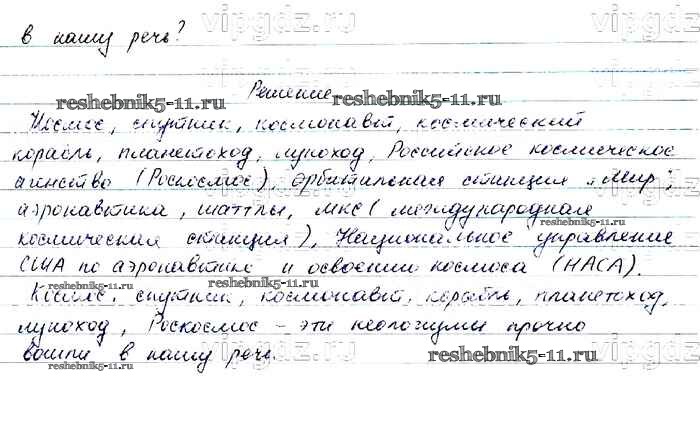 vipgdz.ru
в нашу речь?
vipgdz.ru
Решение
reshebnik5-11.ru reshebnik5-11.ru
Космос, спутник, космонавт, космический
корабль, планетоход, луноход, Российское космическое
агенство (Роскосмос), орбитальная станция „Мир",
аэронавтика, шаттлы, МКС (международная
космическая станция), Национальное управление
США по аэронавтике и освоению космоса (НАСА).
reshebnik5-11.ru reshebnik5-11.ru
Космос, спутник, космонавт, корабль, планетоход,
луноход, Роскосмос – эти неологизмы прочно
вошли в нашу речь.
vipgdz.ru vipgdz.ru
reshebnik5-11.ru reshebnik5-11.ru